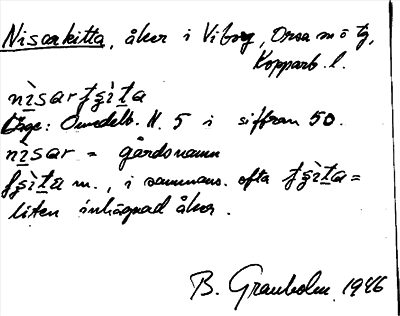 Nisarkitta, åker i Viborg, Orsa sn o tg,
Kopparb. l.
nìsartʂìta
Läge: Omedelb. N. 5 i siffran 50.
nìsar = gårdsnamn
tʂìta m., i sammans. ofta tʂìta =
liten inhägnad åker.
B. Granholm 1946